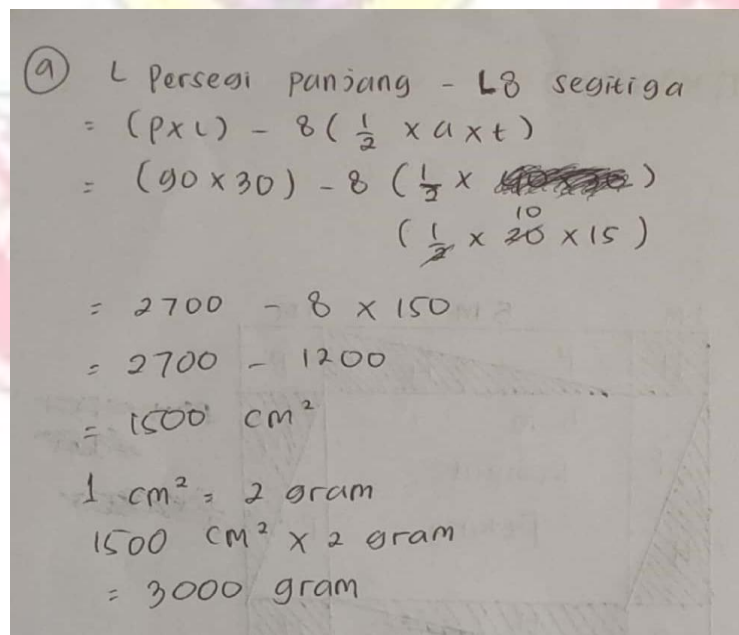 a L Persegi panjang - L8 segitiga
= (P x L) - 8 ( 1/2 x a x t )
= (90 x 30) - 8 ( 1/2 x )
10
( 1/2 x 20 x 15 )
= 2700 - 8 x 150
= 2700 - 1200
= 1500 cm²
1 cm² = 2 gram
1500 cm² x 2 gram
= 3000 gram